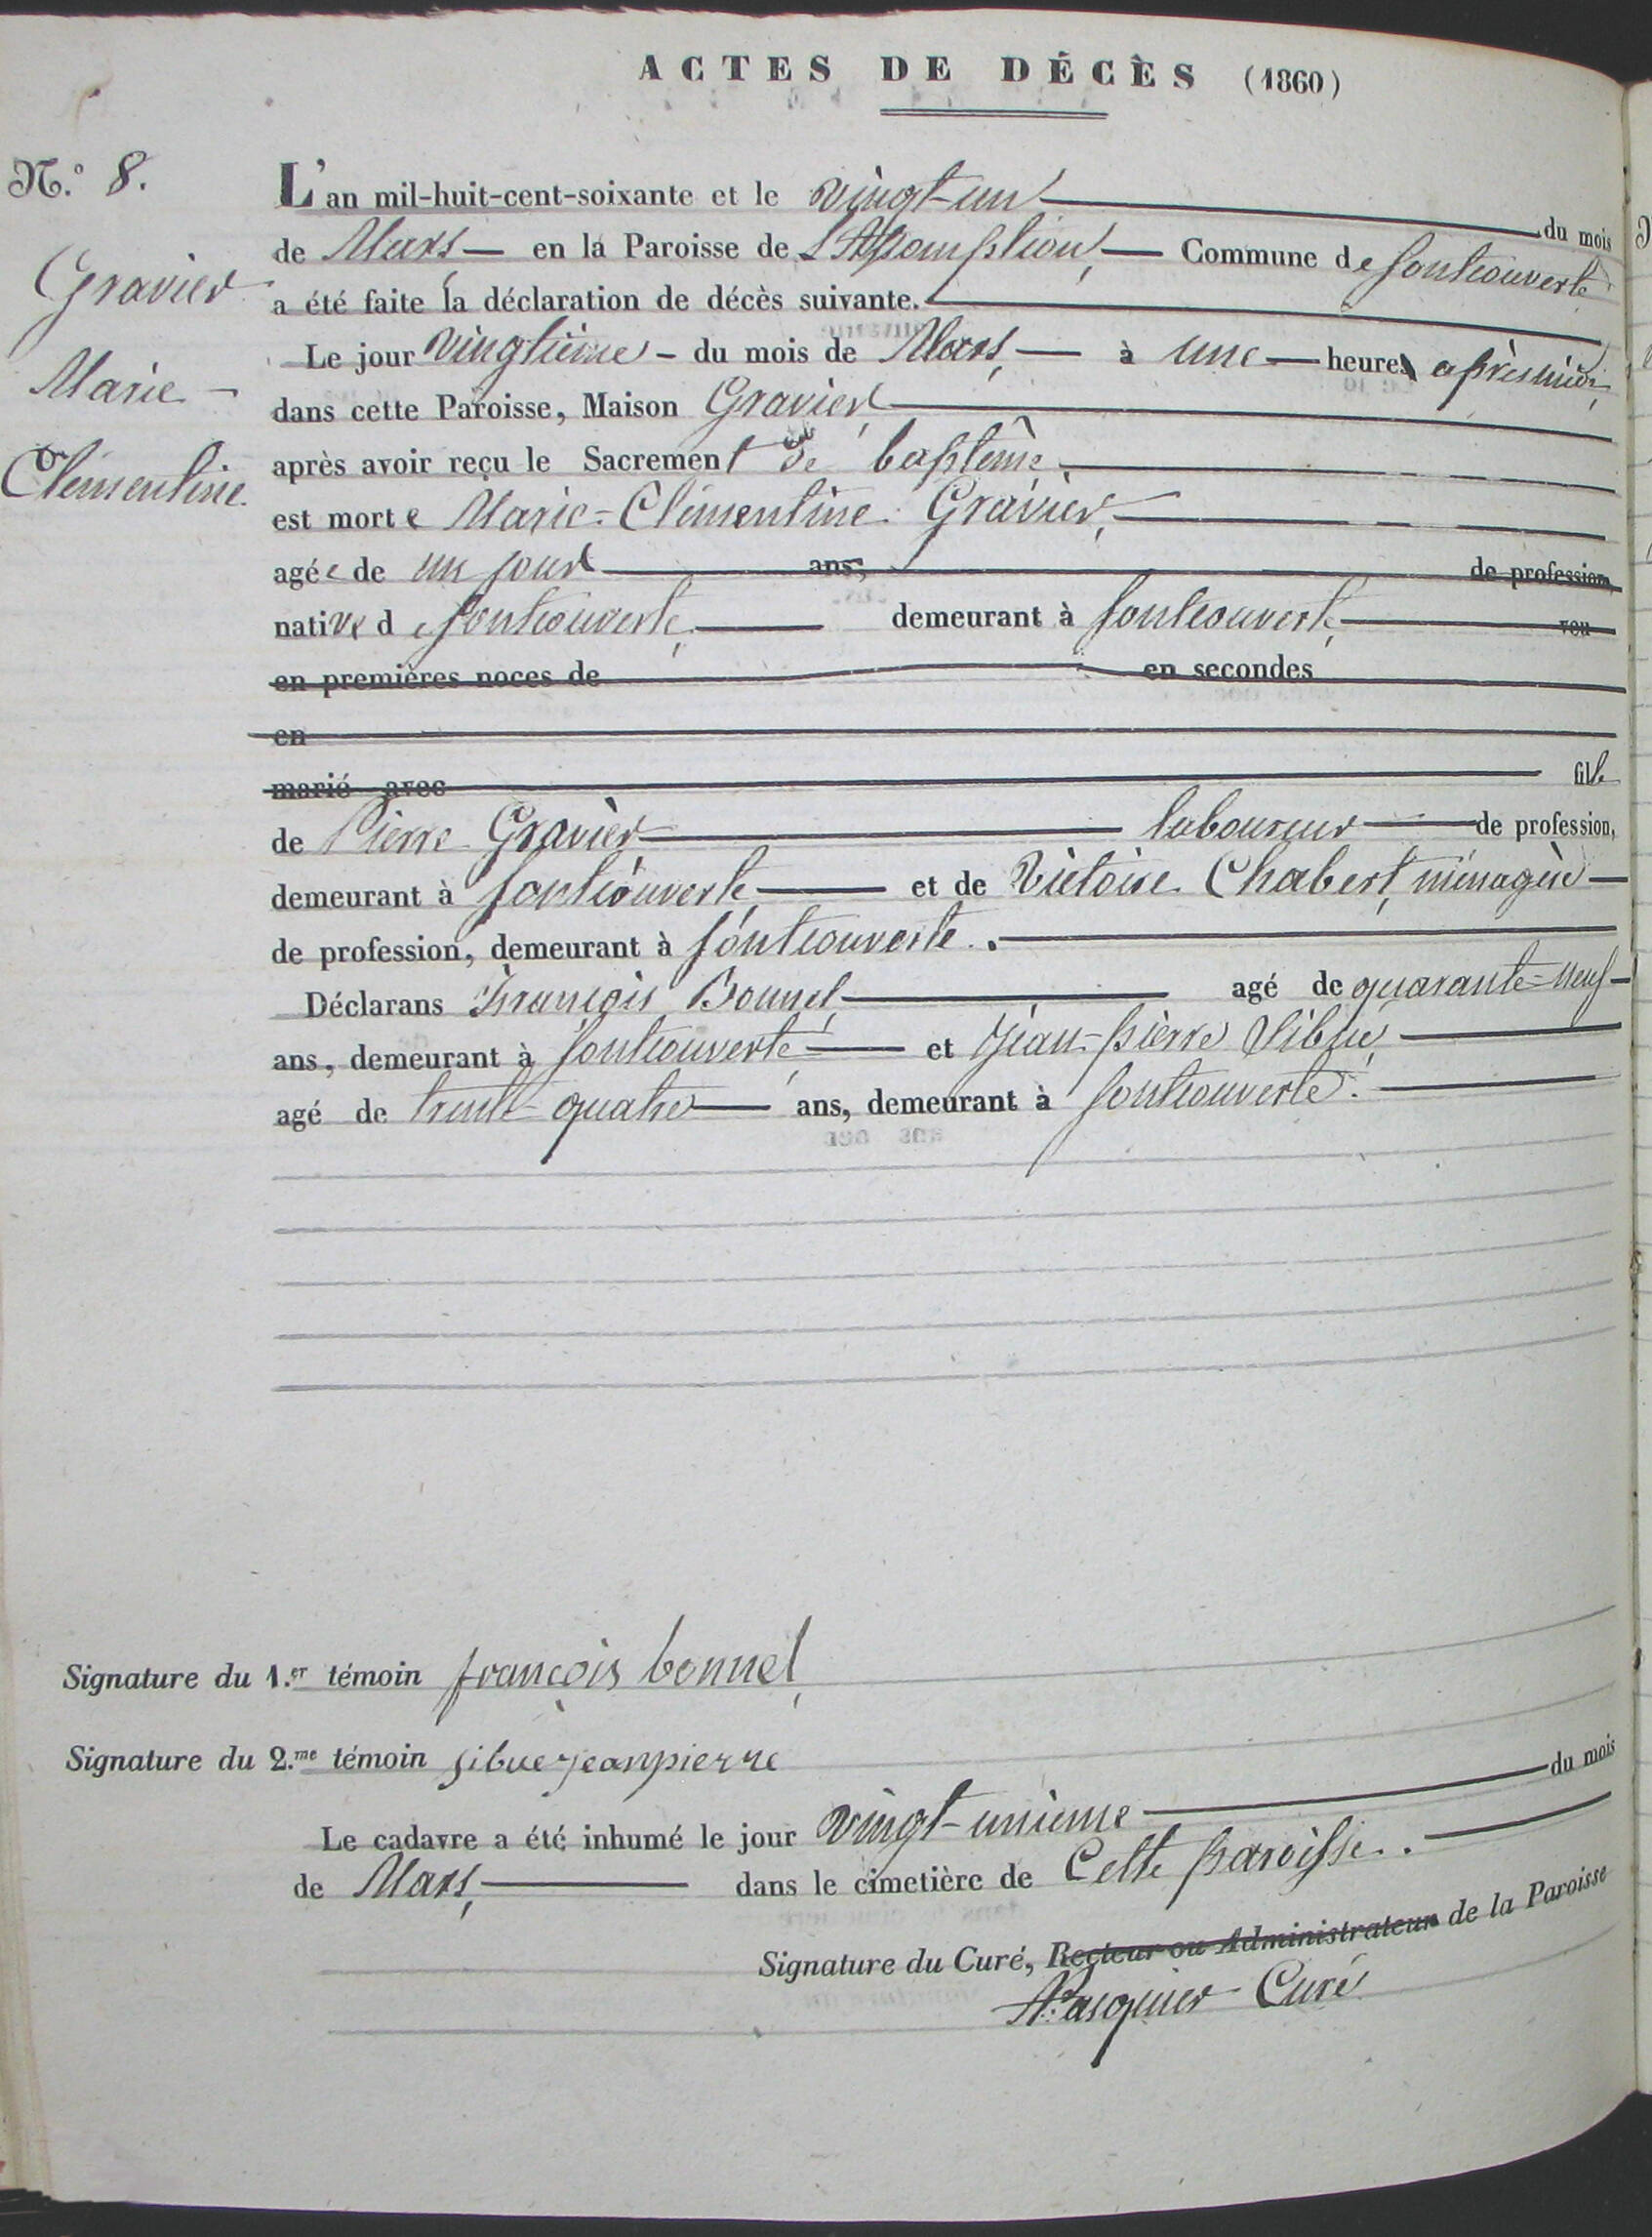 ACTES DE DÉCÈS (1860)
N.º 8.
Gravier
Marie
Clémentine
L'an mil-huit-cent-soixante et le vingt-un du mois
de Mars en la Paroisse de L'Assomption, Commune de fontcouverte
a été faite la déclaration de décès suivante.
Le jour vingtième du mois de Mars, à une heure après midi,
dans cette Paroisse, Maison Gravier,
après avoir reçu le Sacrement de baptême,
est morte Marie-Clémentine Gravier,
agée de un jour ans, de profession,
native de fontcouverte, demeurant à fontcouverte, veu
en premières noces de en secondes
en
marié avec fille
de Pierre Gravier laboureur de profession,
demeurant à fontcouverte, et de Victoire Chabert, ménagère
de profession, demeurant à fontcouverte.
Déclarans François Bonnel, agé de quarante-neuf
ans, demeurant à fontcouverte, et Jean-pierre Sibué,
agé de trente-quatre ans, demeurant à fontcouverte.
Signature du 1.er témoin françois bonnel
Signature du 2.me témoin sibue jeanpierre
Le cadavre a été inhumé le jour vingt-unième du mois
de Mars, dans le cimetière de Cette paroisse.
Signature du Curé, Recteur ou Administrateur de la Paroisse
Pasquier Curé